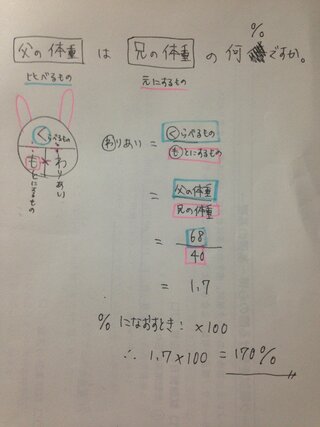 父の体重 は 兄の体重 の 何 % ですか。
ヒヒべるもの 元にするもの
くらべるもの
も × わりあい
もとにするもの
わりあい = くらべるもの
もとにするもの
= 父の体重
兄の体重
= 68
40
= 1.7
% になおすとき: ×100
∴ 1.7×100 = 170%